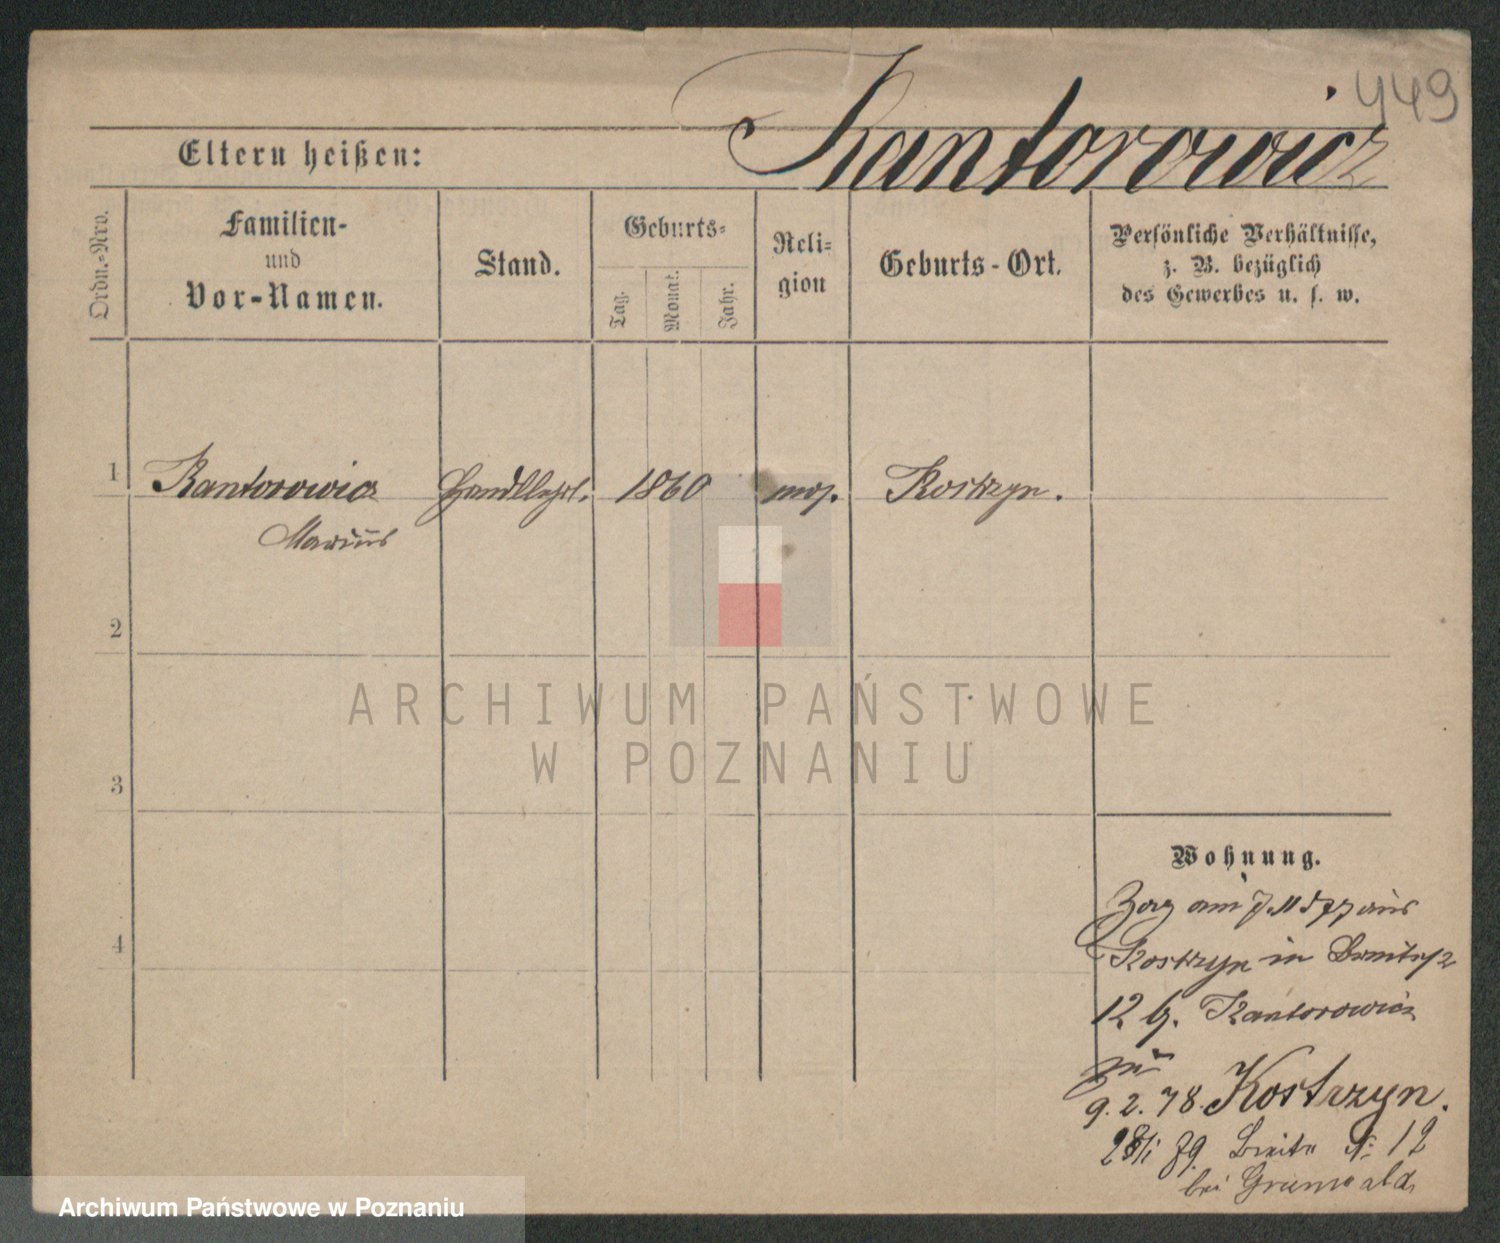 449
Kantorowicz
Eltern heißen:
Ordn.-Nro.
Familien-
und
Vor-Namen.
Stand.
Geburts-
Tag.
Monat.
Jahr.
Reli-
gion
Geburts-Ort.
Persönliche Verhältnisse,
z. B. bezüglich
des Gewerbes u. s. w.
1 Kantorowicz 1860 mos. Kostrzyn.
2
ARCHIWUM PAŃSTWOWE
W POZNANIU
3
Wohnung.
Zog am 7 11 77 aus
4
Kostrzyn in
12 b. Kantorowicz
9. 2. 78. Kostrzyn.
28/1 79. Breite № 12
bei Grunwald
Archiwum Państwowe w Poznaniu